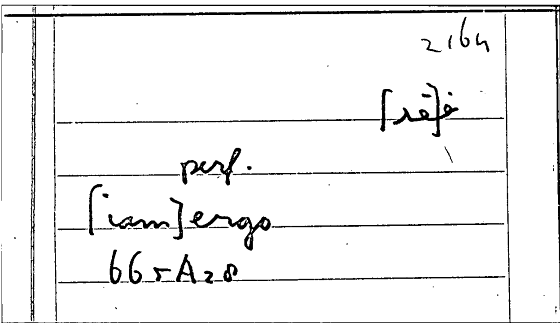 2164
[rē]ĕ
perf.
[iam] ergo
665A28